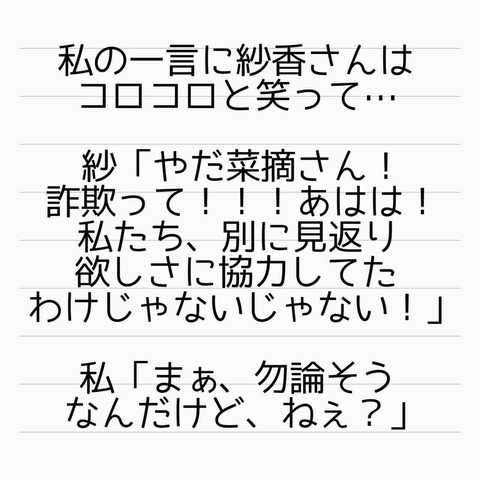 私の一言に紗香さんは
コロコロと笑って…
紗「やだ菜摘さん！
詐欺って！！！あはは！
私たち、別に見返り
欲しさに協力してた
わけじゃないじゃない！」
私「まぁ、勿論そう
なんだけど、ねぇ？」